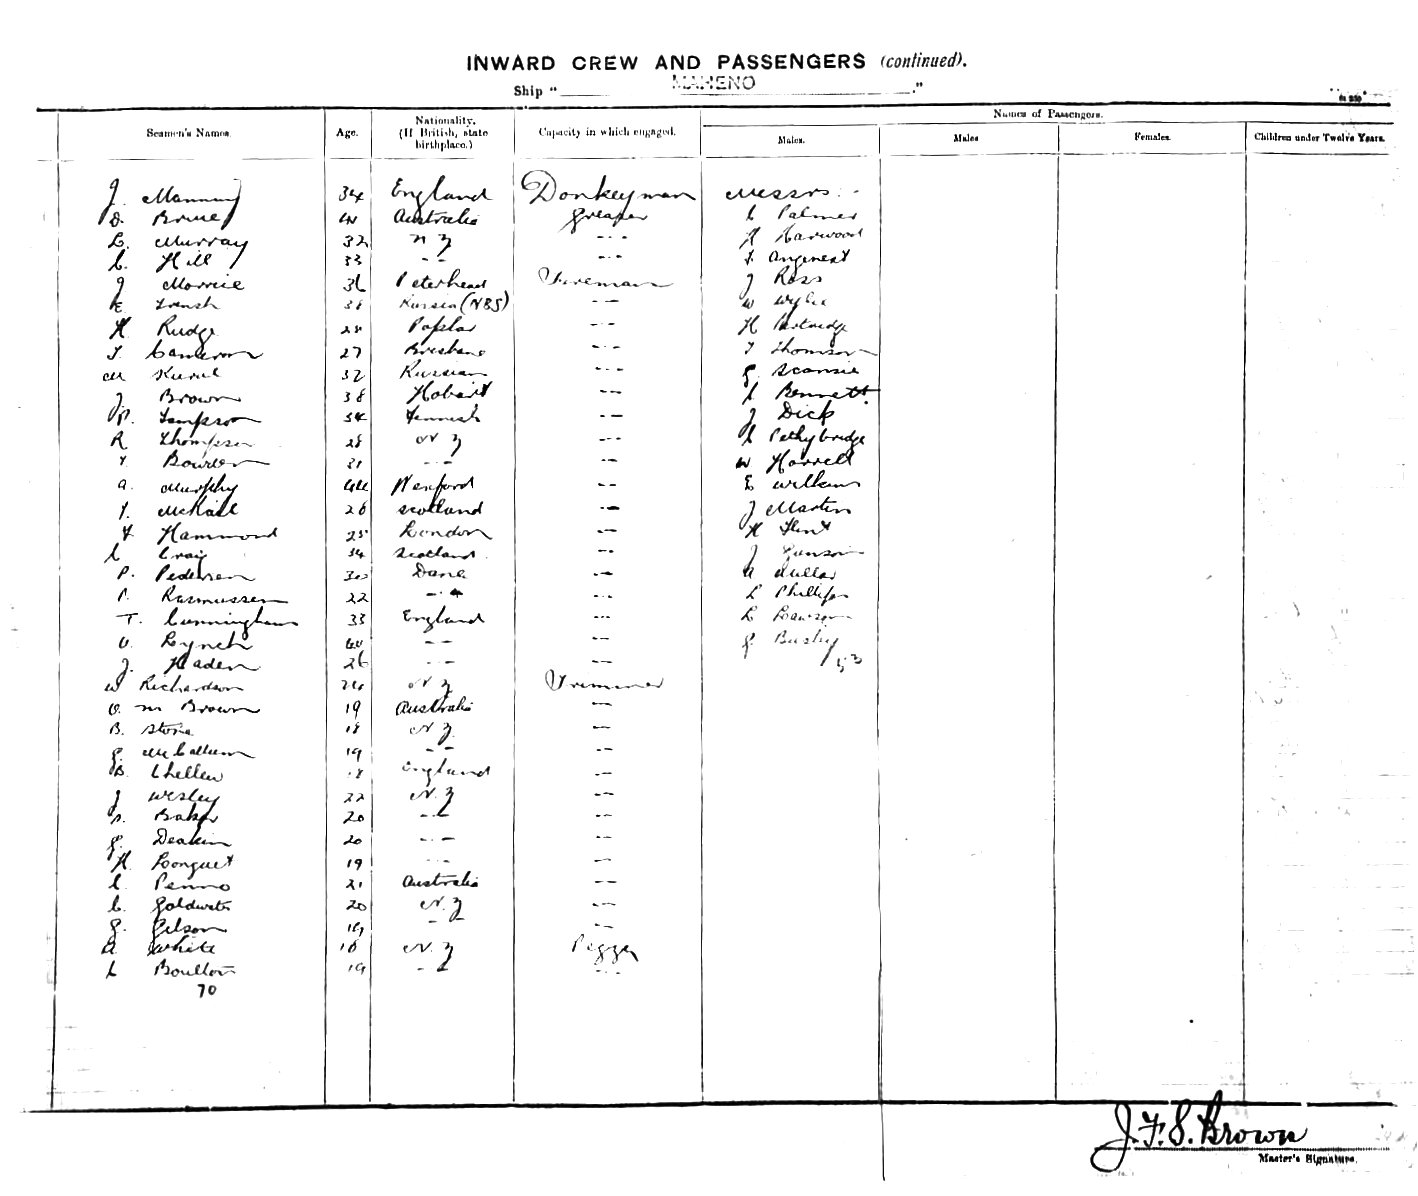 INWARD CREW AND PASSENGERS (continued).
Ship " MAHENO ."
Seamen's Names. Age. Nationality. (If British, state birthplace.) Capacity in which engaged. Names of Passengers.
Males. Males Females. Children under Twelve Years.
J. Manning 34 England Donkeyman Messrs. -
D. Bruce Australia Greaser Palmer
C. Murray 32 N Z -"- H Harwood
C. Hill 33 -"- -"-
J Morrice 36 Peterhead Fireman J Ross
38 Russia (NBS) -"- W Wylie
H. Rudge 28 Poplar -"- H Partridge
T Cameron 27 Brisbane -"- T Thomson
M 32 Russian -"- G
J Brown 38 Hobart -"- C Bennett
P. 34 Finnish -"- J Dick
R Thompson 28 N Z -"- C Pethybridge
T. Bowden 31 -"- -"- W Horrell
A. Murphy 44 Wexford -"- E Wilkins
T. McKail 26 Scotland -"- J Martin
F Hammond 25 London -"- H Flint
C Craig 34 Scotland -"- J
P. Pedersen 30 Dane -"- A
P. Rasmussen 22 -"- -"- L Phillips
T. Cunningham 33 England -"- L Lawson
O. Lynch 40 -"- -"- G Busby
J. Haden 26 -"- -"- 53
W Richardson 24 N Z Trimmer
O. M Brown 19 Australia -"-
B. Stone 18 N Z. -"-
G. McCallum 19 -"- -"-
B. Chellew 18 England -"-
J Wesley 22 N. Z -"-
S. Baker 20 -"- -"-
G. Deakin 20 -"- -"-
H. Longuet 19 -"- -"-
C. Penno 21 Australia -"-
C. Goldwater 20 N. Z -"-
G. Gilson 19 -"- -"-
A. White 18 N. Z Peggy
L Boulton 19 -"- -"-
70
J. F. S. Brown
Master's Signature.